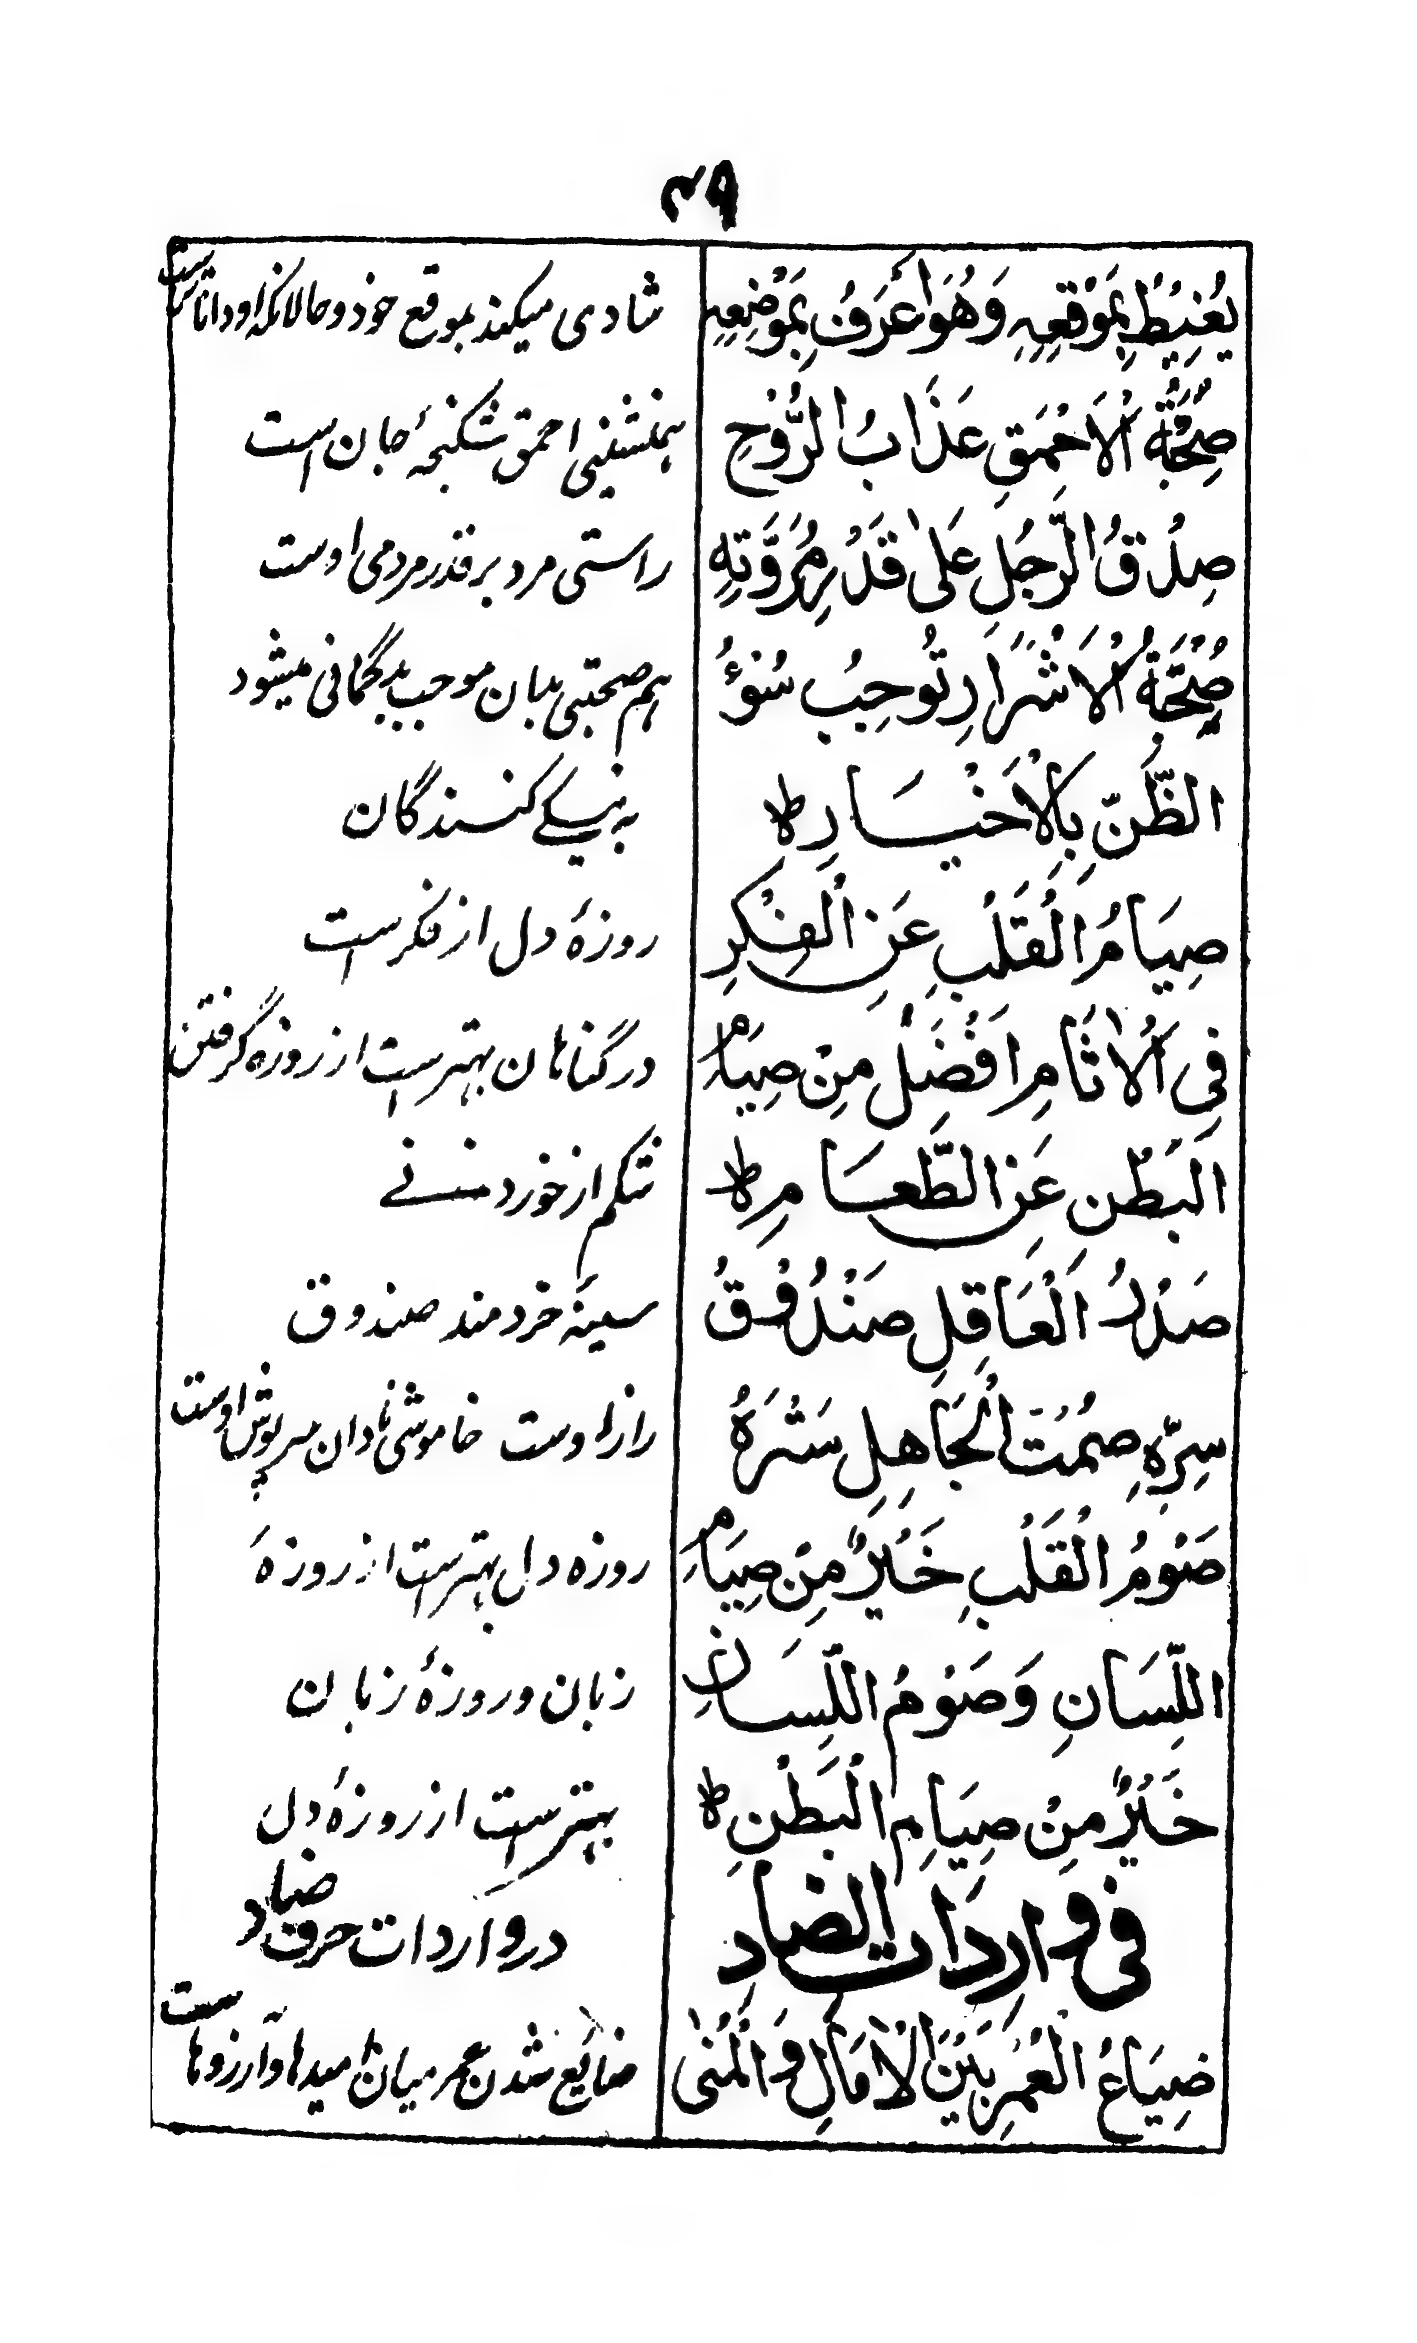 يُغْبَطُ بِمَوْقِعِهٖ وَهُوَ اَعْرَفُ بِمَوْضِعِهٖ
شادی میکند بموقع خود و حالانکه او دانا تر است
صُحْبَةُ الْاَحْمَقِ عَذَابُ الرُّوْحِ
ہمنشینی احمق شکنجۂ جان است
صِدْقُ الرَّجُلِ عَلٰى قَدْرِ مُرُوَّتِهٖ
راستی مرد بر قدر مردمی اوست
صُحْبَةُ الْاَشْرَارِ تُوْجِبُ سُوْءُ
ہم صحبتی بدان موجب بدگمانی میشود
الظَّنِّ بِالْاَخْيَارِ ط
بہ نیکے کنندگان
صِيَامُ الْقَلْبِ عَنِ الْفِكْرِ
روزۂ دل از فکر ست
فِى الْاٰثَامِ اَفْضَلُ مِنْ صِيَامِ
در گناہان بہتر ست از روزہ گرفتن
الْبَطْنِ عَنِ الطَّعَامِ ط
شکم از خوردنے
صَدْرُ الْعَاقِلِ صَنْدُوْقُ
سینۂ خردمند صندوق
سِرِّهٖ صَمْتُ الْجَاهِلِ سَتْرُهٗ
راز اوست خاموشی نادان سرپوش اوست
صَوْمُ الْقَلْبِ خَيْرٌ مِنْ صِيَامِ
روزہ دل بہتر ست از روزۂ
اللِّسَانِ وَصَوْمُ اللِّسَانِ
زبان و روزۂ زبان
خَيْرٌ مِنْ صِيَامِ الْبَطْنِ ط
بہتر ست از روزۂ دل
فی واردات الضاد
در واردات حرف ضاد
ضِيَاعُ الْعُمْرِ بَيْنَ الْاٰمَالِ وَالْمُنٰى
ضائع شدن عمر میان امیدہا و آرزوہا ست